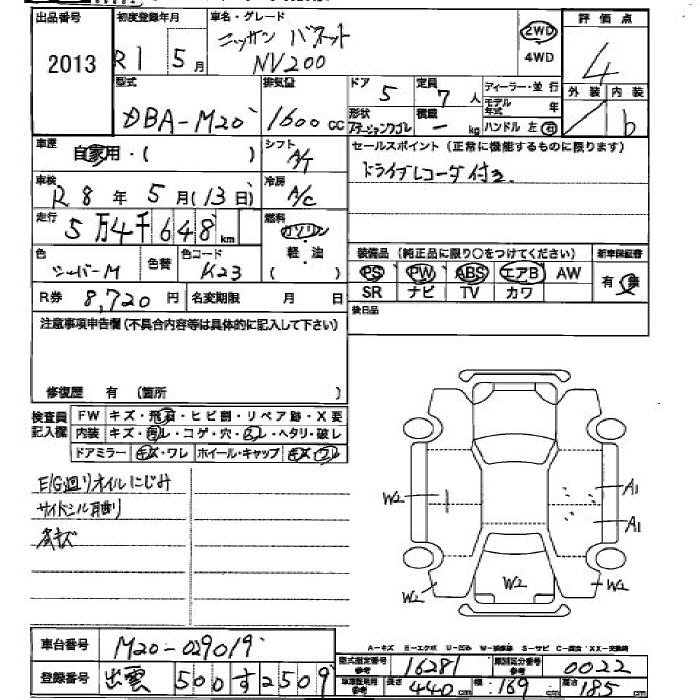 出品番号 2013
初度登録年月 R1 5月
車名・グレード ニッサン バネット NV200
2WD 4WD
評価点 4
外装 内装 b
型式 DBA-M20
排気量 1600 CC
ドア 5
定員 7人
ディーラー・並行
モデル年式 年
ハンドル 左 右
形状 ステーションワゴン
積載 ー kg
車歴 自家用・( )
シフト A/T
セールスポイント(正常に機能するものに限ります)
ドライブレコーダ付き
車検 R8年5月(13日)
冷房 A/C
走行 5万4千648km
燃料 ガソリン 軽・油 ( )
色 シーバーM
色替
色コード K23
装備品(純正品に限り○をつけてください)
新車保証書 有・無
PS PW ABS エアB AW
SR ナビ TV カワ
R券 8,720円
名変期限 月 日
後日品
注意事項申告欄(不具合内容等は具体的に記入して下さい)
修復歴 有 (箇所 )
検査員記入欄
FW キズ・飛石・ヒビ割・リペア跡・X要
内装 キズ・ ・コゲ・穴・ ・ヘタリ・破レ
ドアミラー キズ・ワレ ホイール・キャップ キズ・ワレ
E/G廻りオイルにじみ
サイドシル 曲り
キズ
W2
A1
A1
W2
W2
W2
A-キズ E-エクボ U-凹み W-補修跡 S-サビ C-腐食 XX-交換済
車台番号 M20-029019
型式指定番号 参考 16281
類別区分番号 参考 0022
登録番号 出雲 500す2509
長さ 440cm 幅 169 高さ 185cm